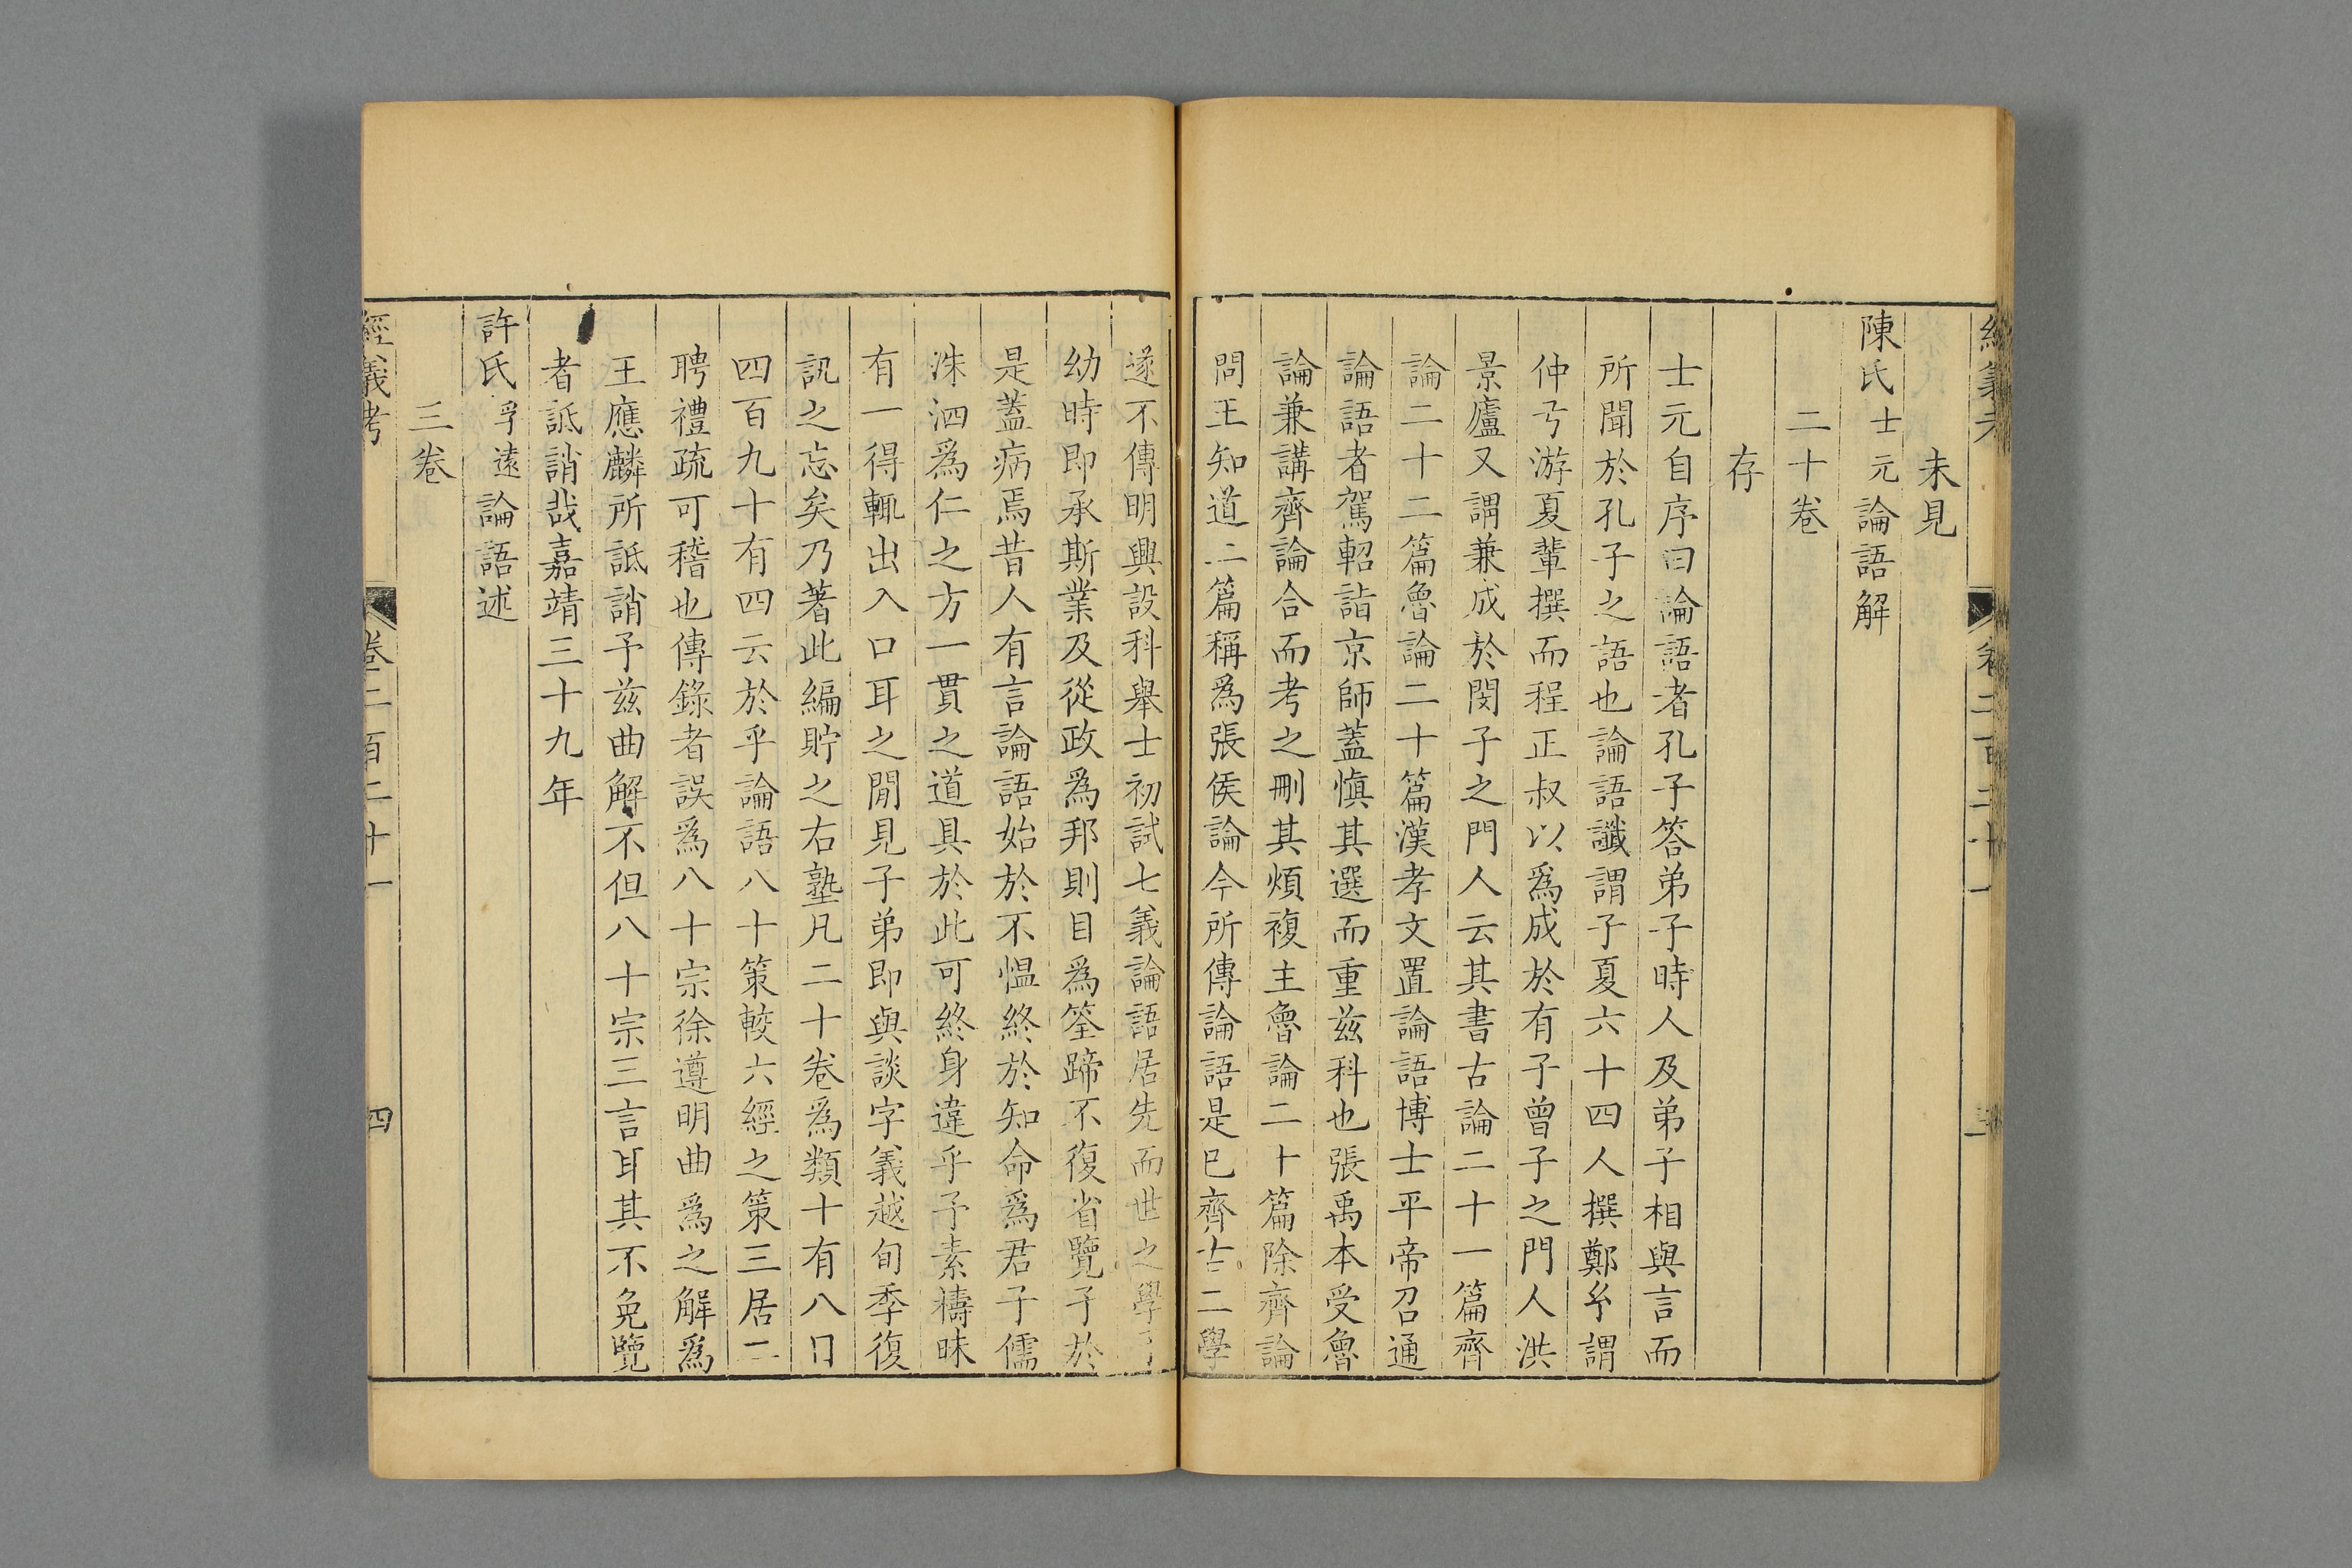 經義考
卷二百二十一
三
未見
陳氏士元論語解
二十卷
存
士元自序曰論語者孔子答弟子時人及弟子相與言而
所聞於孔子之語也論語讖謂子夏六十四人撰鄭𤣥謂
仲弓游夏輩撰而程正叔以爲成於有子曾子之門人洪
景廬又謂兼成於閔子之門人云其書古論二十一篇齊
論二十二篇魯論二十篇漢孝文置論語博士平帝召通
論語者駕軺詣京師蓋愼其選而重兹科也張禹本受魯
論兼講齊論合而考之刪其煩複主魯論二十篇除齊論
問王知道二篇稱爲張侯論今所傳論語是已齊古二學
遂不傳明興設科舉士初試七義論語居先而世之學
幼時即承斯業及從政爲邦則目爲筌蹄不復省覽予於
是蓋病焉昔人有言論語始於不慍終於知命爲君子儒
洙泗爲仁之方一貫之道具於此可終身違乎予素檮昧
有一得輒出入口耳之閒見子弟即與談字義越旬季復
訊之忘矣乃著此編貯之右塾凡二十卷爲類十有八目
四百九十有四云於乎論語八十策較六經之策三居二
聘禮疏可稽也傳錄者誤爲八十宗徐遵明曲爲之解爲
王應麟所詆誚予兹曲解不但八十宗三言耳其不免覽
者詆誚哉嘉靖三十九年
許氏孚遠論語述
三卷
經義考
卷二百二十一
四